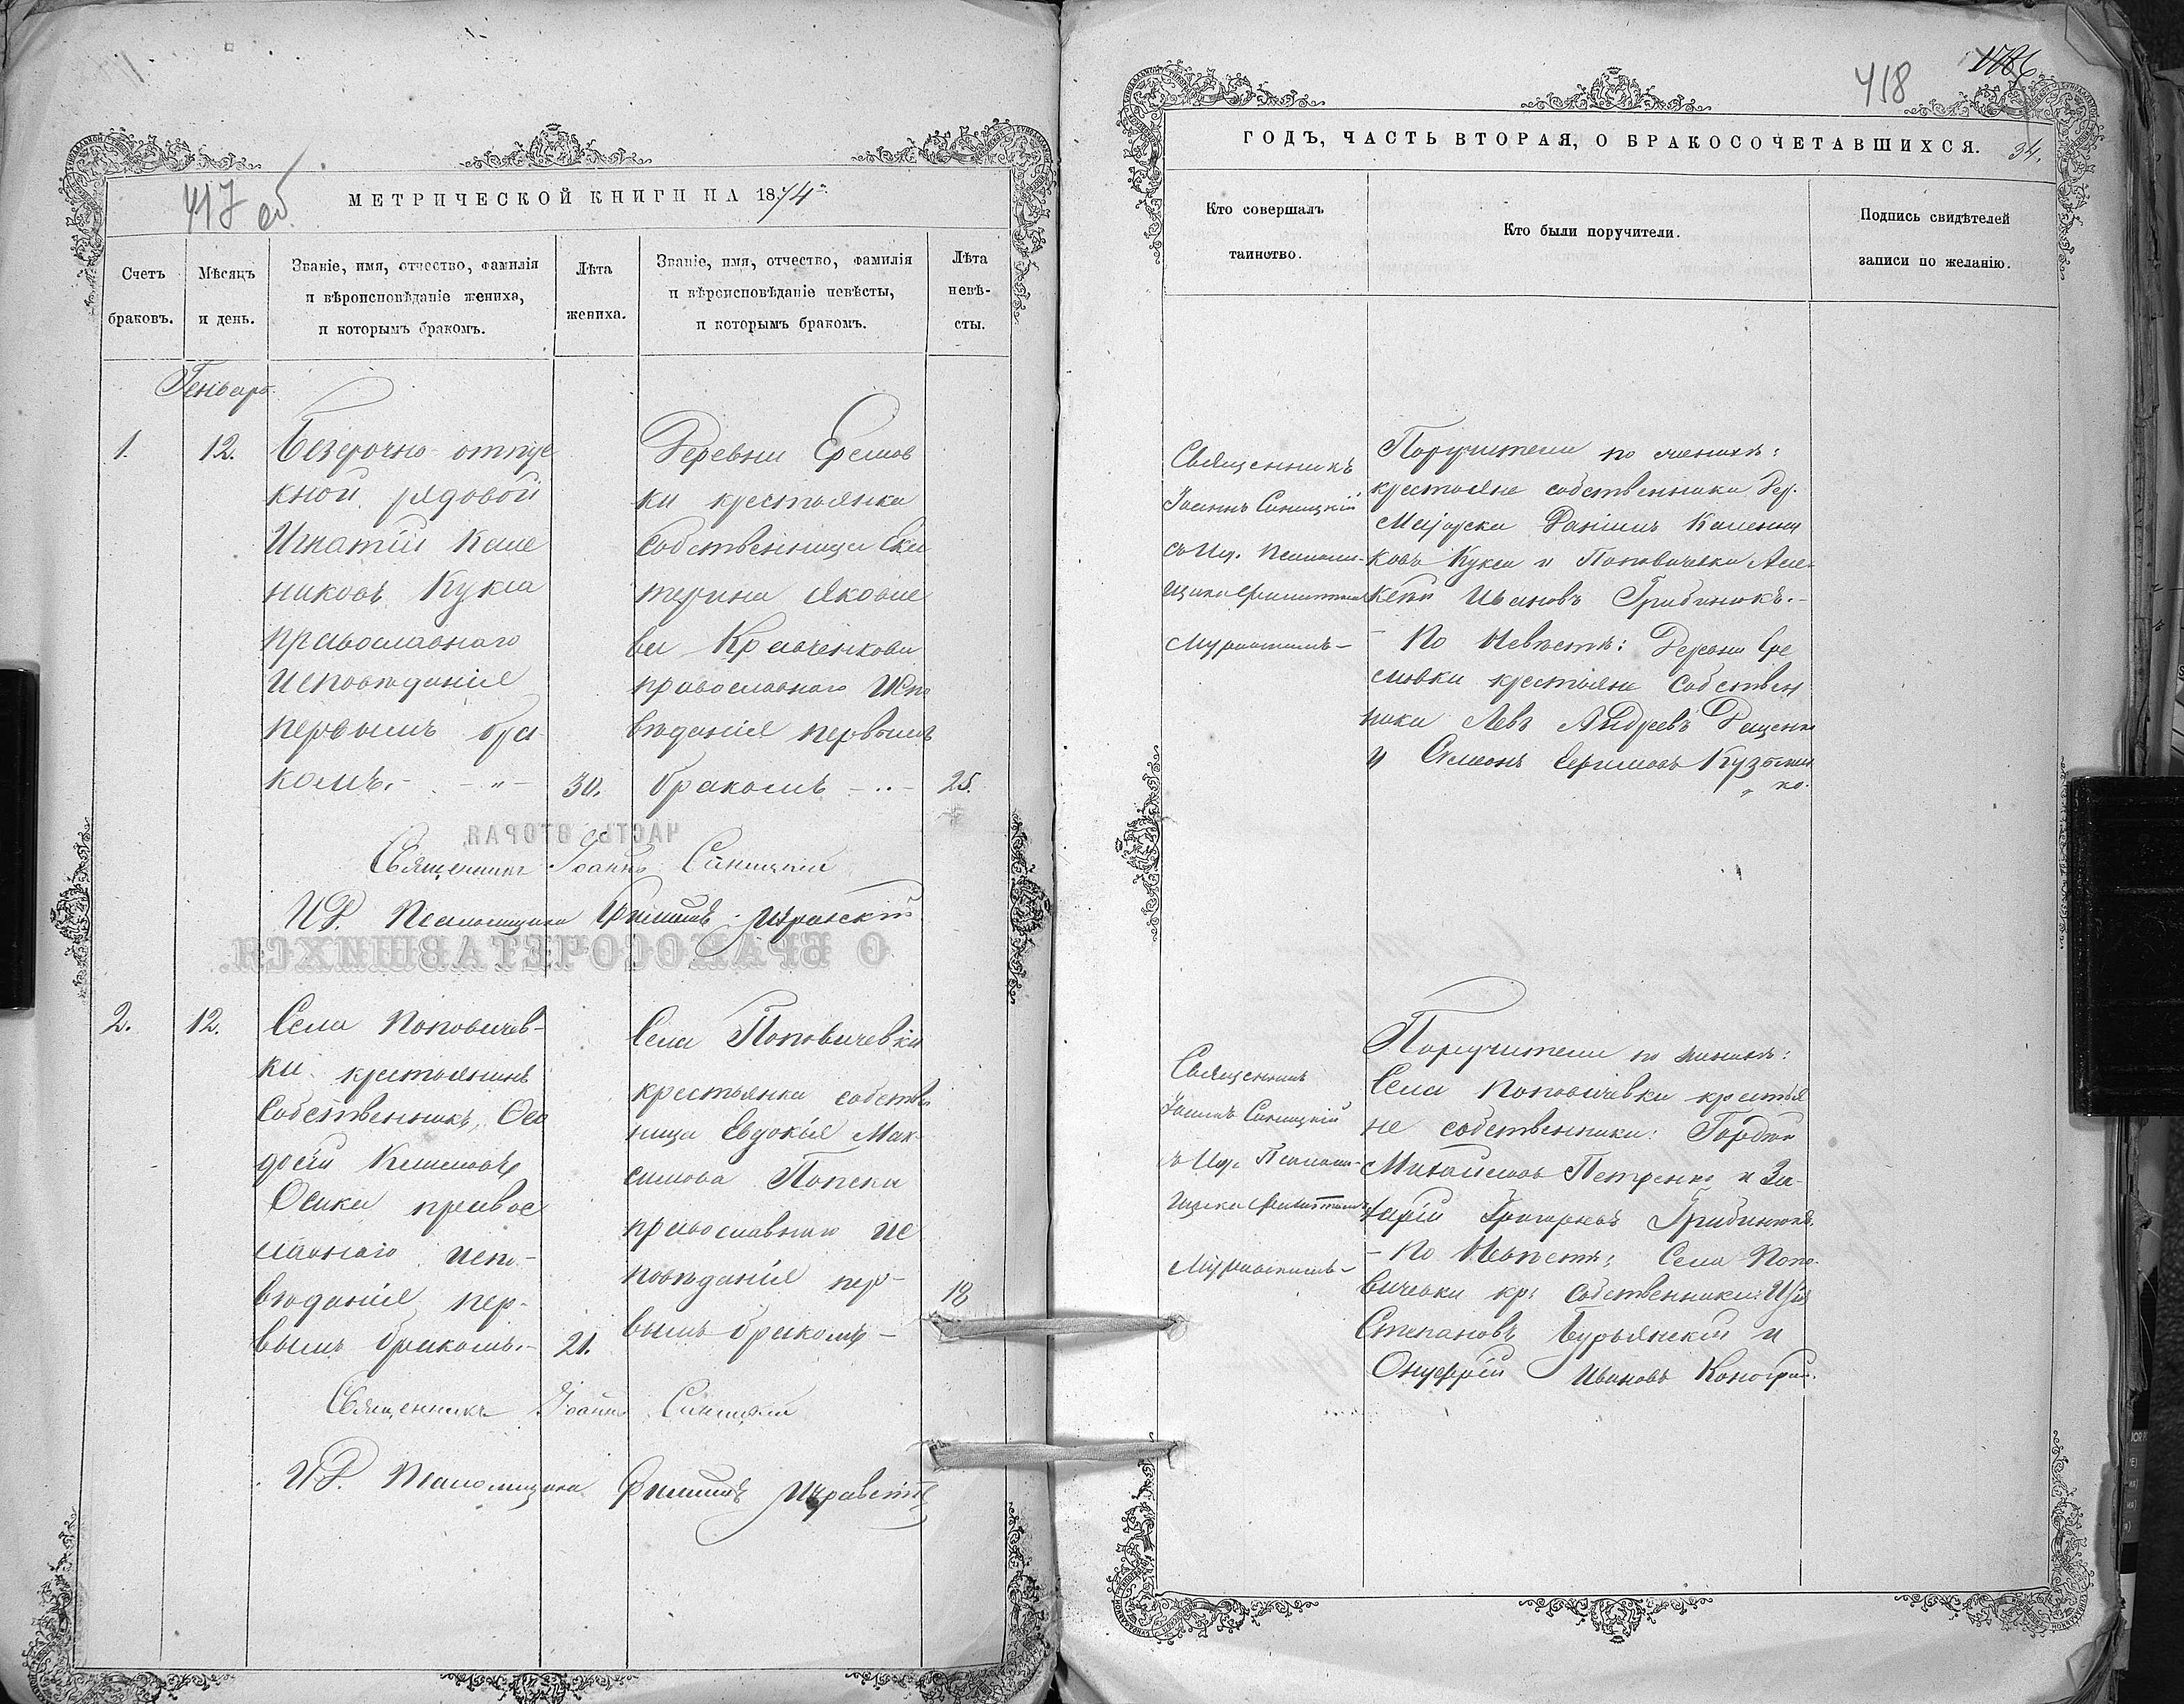 417 об
МЕТРИЧЕСКОЙ КНИГИ НА 1874
Счетъ браковъ.
Мѣсяцъ и день.
Званіе, имя, отчество, фамилія
и вѣроисповѣданіе жениха,
и которымъ бракомъ.
Лѣта жениха.
Званіе, имя, отчество, фамилія
и вѣроисповѣданіе невѣсты,
и которымъ бракомъ.
Лѣта невѣ-
сты.
Генварь.
1.
12.
Безсрочно-отпус
кной рядовой
Игнатій
Кукса
православнаго
исповѣданія
первымъ бра
комъ.
30.
Деревни Еремов
ки крестьянка
собственница Ека
терина Яковле
ва Кравченкова
православнаго испо
вѣданія первымъ
бракомъ
25.
ЧАСТЬ ВТОРАЯ,
Священникъ Іоаннъ Синицкій
И Д. Псаломщика Филиппъ
О БРАКОСОЧЕТАВШИХСЯ.
2.
12.
Села Поповичев-
ки крестьянинъ
собственникъ Ѳео
досій Климовъ
Осика правос
лавнаго испо-
вѣданія пер-
вымъ бракомъ.
21.
Села Поповичевки
крестьянка собстве
ница Евдокія Мак-
симова
православнаго ис
повѣданія пер-
вымъ бракомъ
18
Священникъ Іоаннъ Синицкій
И Д. Псаломщика Филиппъ
418
34.
ГОДЪ, ЧАСТЬ ВТОРАЯ, О БРАКОСОЧЕТАВШИХСЯ.
Кто совершалъ
таинство.
Кто были поручители.
Подпись свидѣтелей
записи по желанію.
Священникъ
Іоаннъ Синицкій
съ И.д. Псалом-
щика Филиппомъ
Поручители по женихѣ:
крестьяне собственники дер.
Маіорски Даніилъ
ковъ Кукса и Поповичевки Але-
ксѣй Ивановъ Грибинюкъ.
- По Невѣстѣ: Деревни Ере
мовки крестьяне собствен
ники Левъ Андреевъ
и Симеонъ Ефимовъ
ко.
Священникъ
Іоаннъ Синицкій
съ И.д. Псалом-
щика Филиппомъ
Поручители по женихѣ:
Села Поповичевки крестья
не собственники: Гордѣй
Михайловъ Петренко и За-
харій Григорьевъ Грибинюкъ.
- По Невѣстѣ: Села Попо-
вичевки кр: собственники:
Степановъ Бурьянскій и
Онуфрій Ивановъ